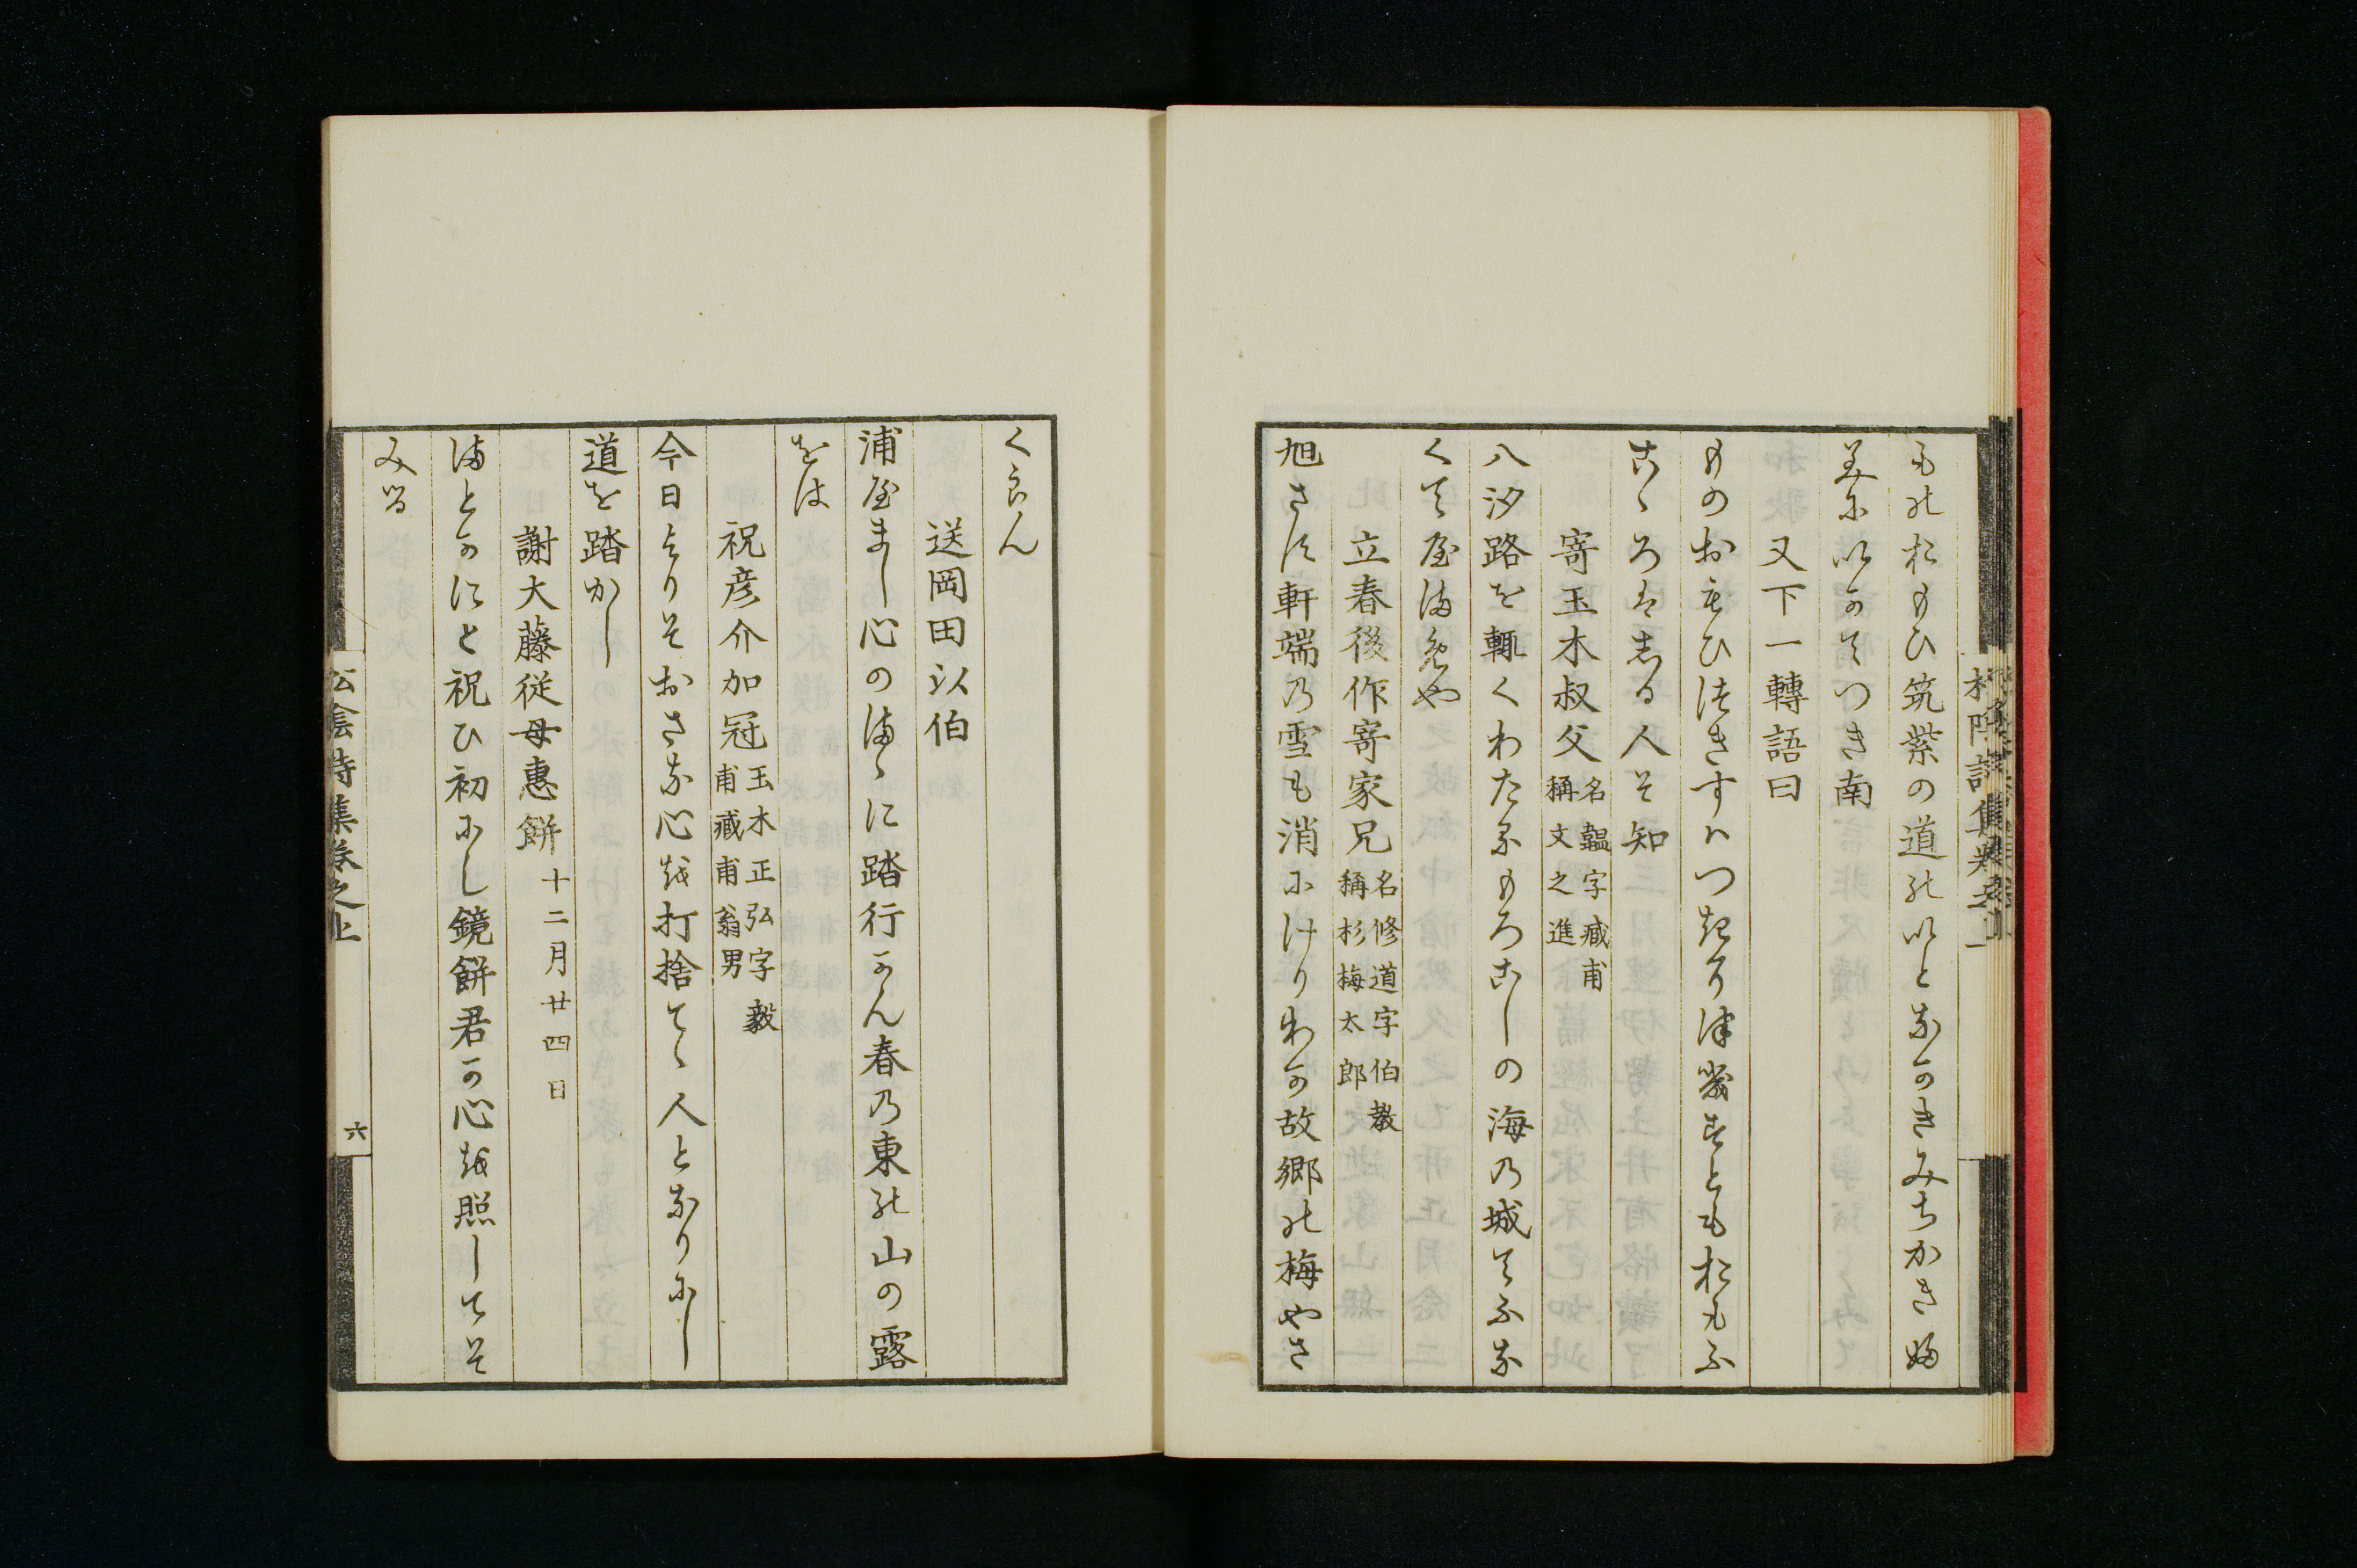 もの於もひ筑紫の道のいとなかきみちかきふ
みにいかてつき南
又下一轉語曰
ものおもひはきすれはつきり津幾すとも於もふ
古ゝろを志る人そ知
寄玉木叔父 名韞字蔵甫 稱文之進
八汐路を輙くわたるもろこしの海乃城てふな
くてやはあや
立春後作寄家兄 名修道字伯教 稱杉梅太郎
旭さす軒端乃雪も消にけりわか故郷の梅やさ
くらん
送岡田以伯
浦やまし心のまゝに踏行かん春乃東の山の露
をは
祝彦介加冠 玉木正弘字毅 甫蔵甫翁男
今日よりそおさな心を打捨てゝ人となりにし
道を踏かし
謝大藤従母惠餅 十二月廿四日
まとかにと祝ひ初にし鏡餅君か心を照してそ
みる
松陰詩集巻之上
六